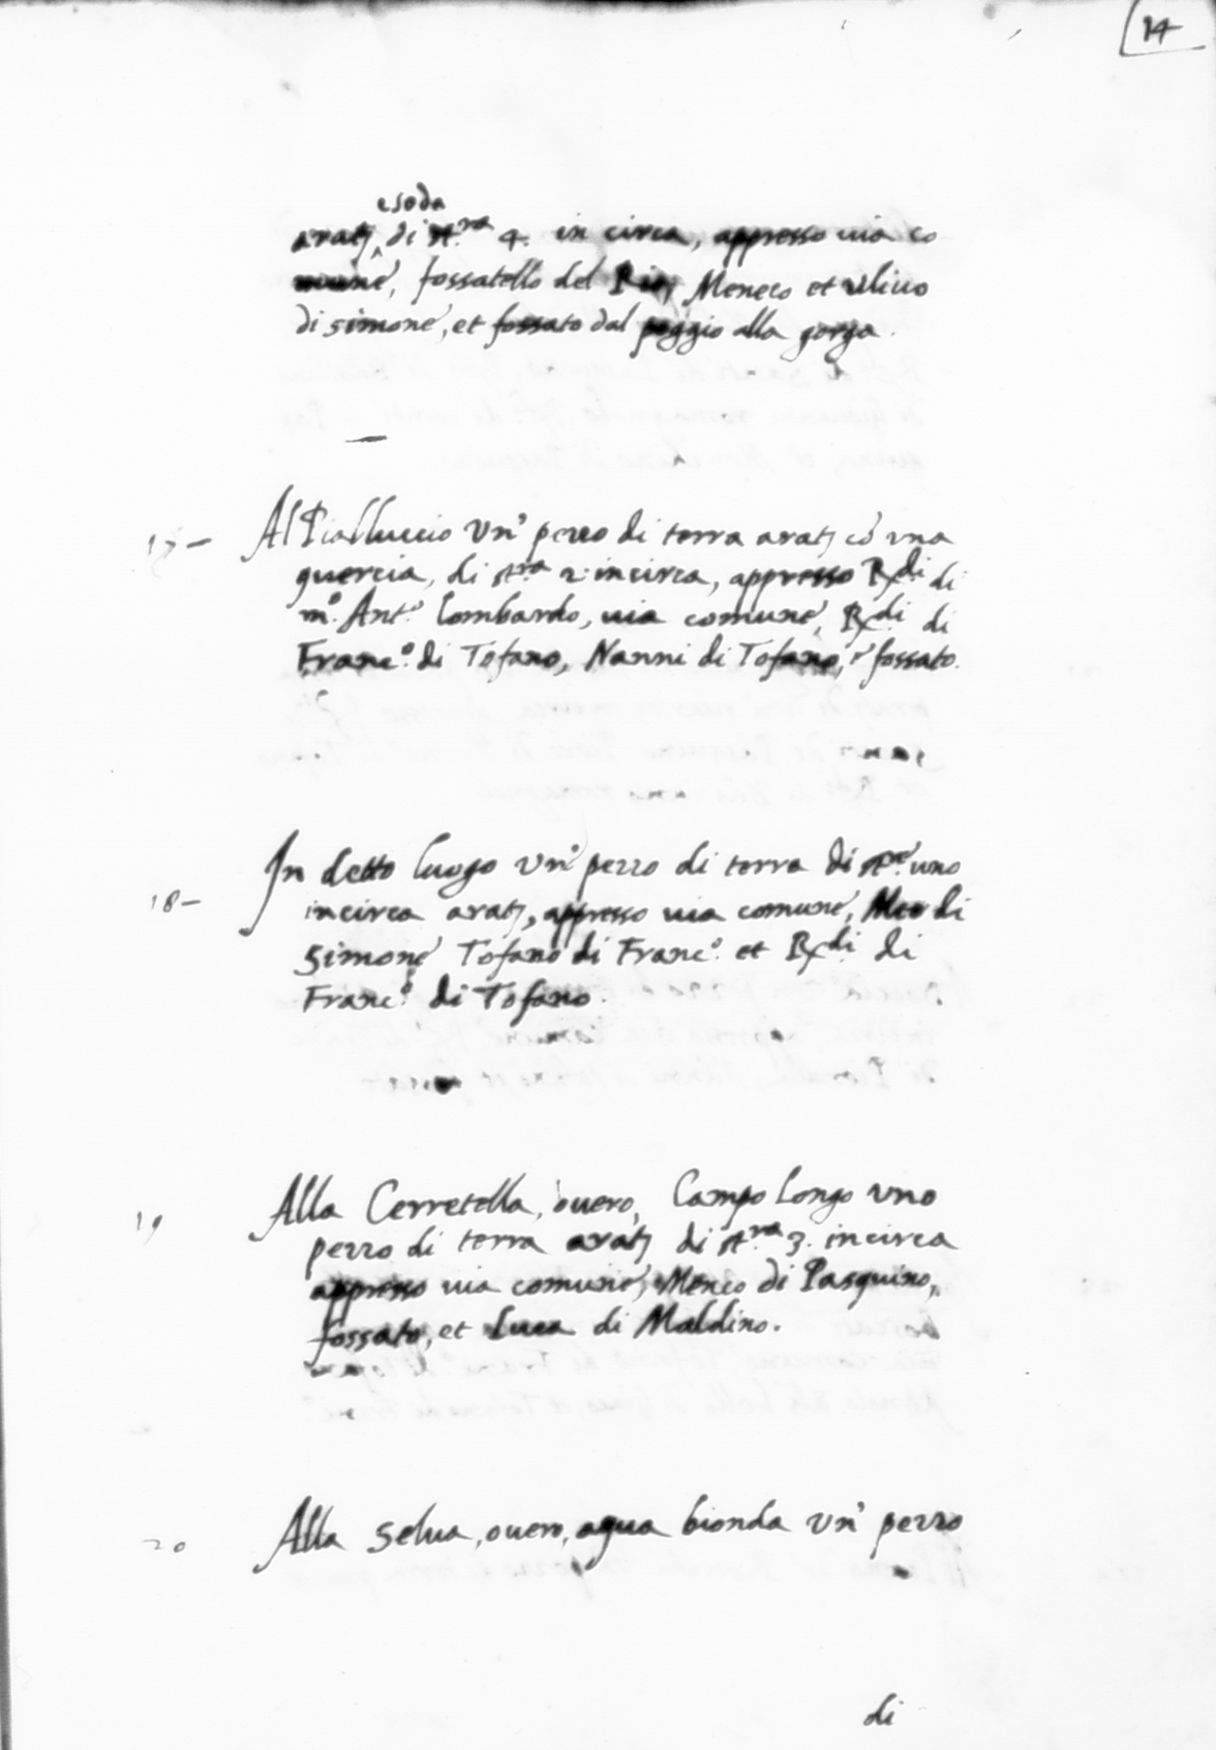 14
e soda
arat; di st.ra 4. in circa, appresso uia co
mune, fossatello del Rio, Meneco et Uliuo
di Simone, et fossato dal poggio alla gorga.
17 - Al Pialluccio Un' pezzo di terra arat; co una
quercia, di st.ra 2. incirca, appresso Rx.di di
m.o Ant.o Lombardo, uia comune, Rx.di di
Franc.o di Tofano, Nanni di Tofano, e fossato.
18 - In detto luogo Un' pezzo di terra di st.ro uno
incirca arat;, appresso uia comune, Meo di
Simone Tofano di Franc.o et Rx.di di
Franc.o di Tofano.
19 Alla Cerretella, ouero, Campo Longo uno
pezzo di terra arat; di st.ra 3. incirca
appresso uia comune, Menco di Pasquino,
fossato, et Luca di Maldino.
20 Alla Selua, ouero, aqua bionda un' pezzo
di